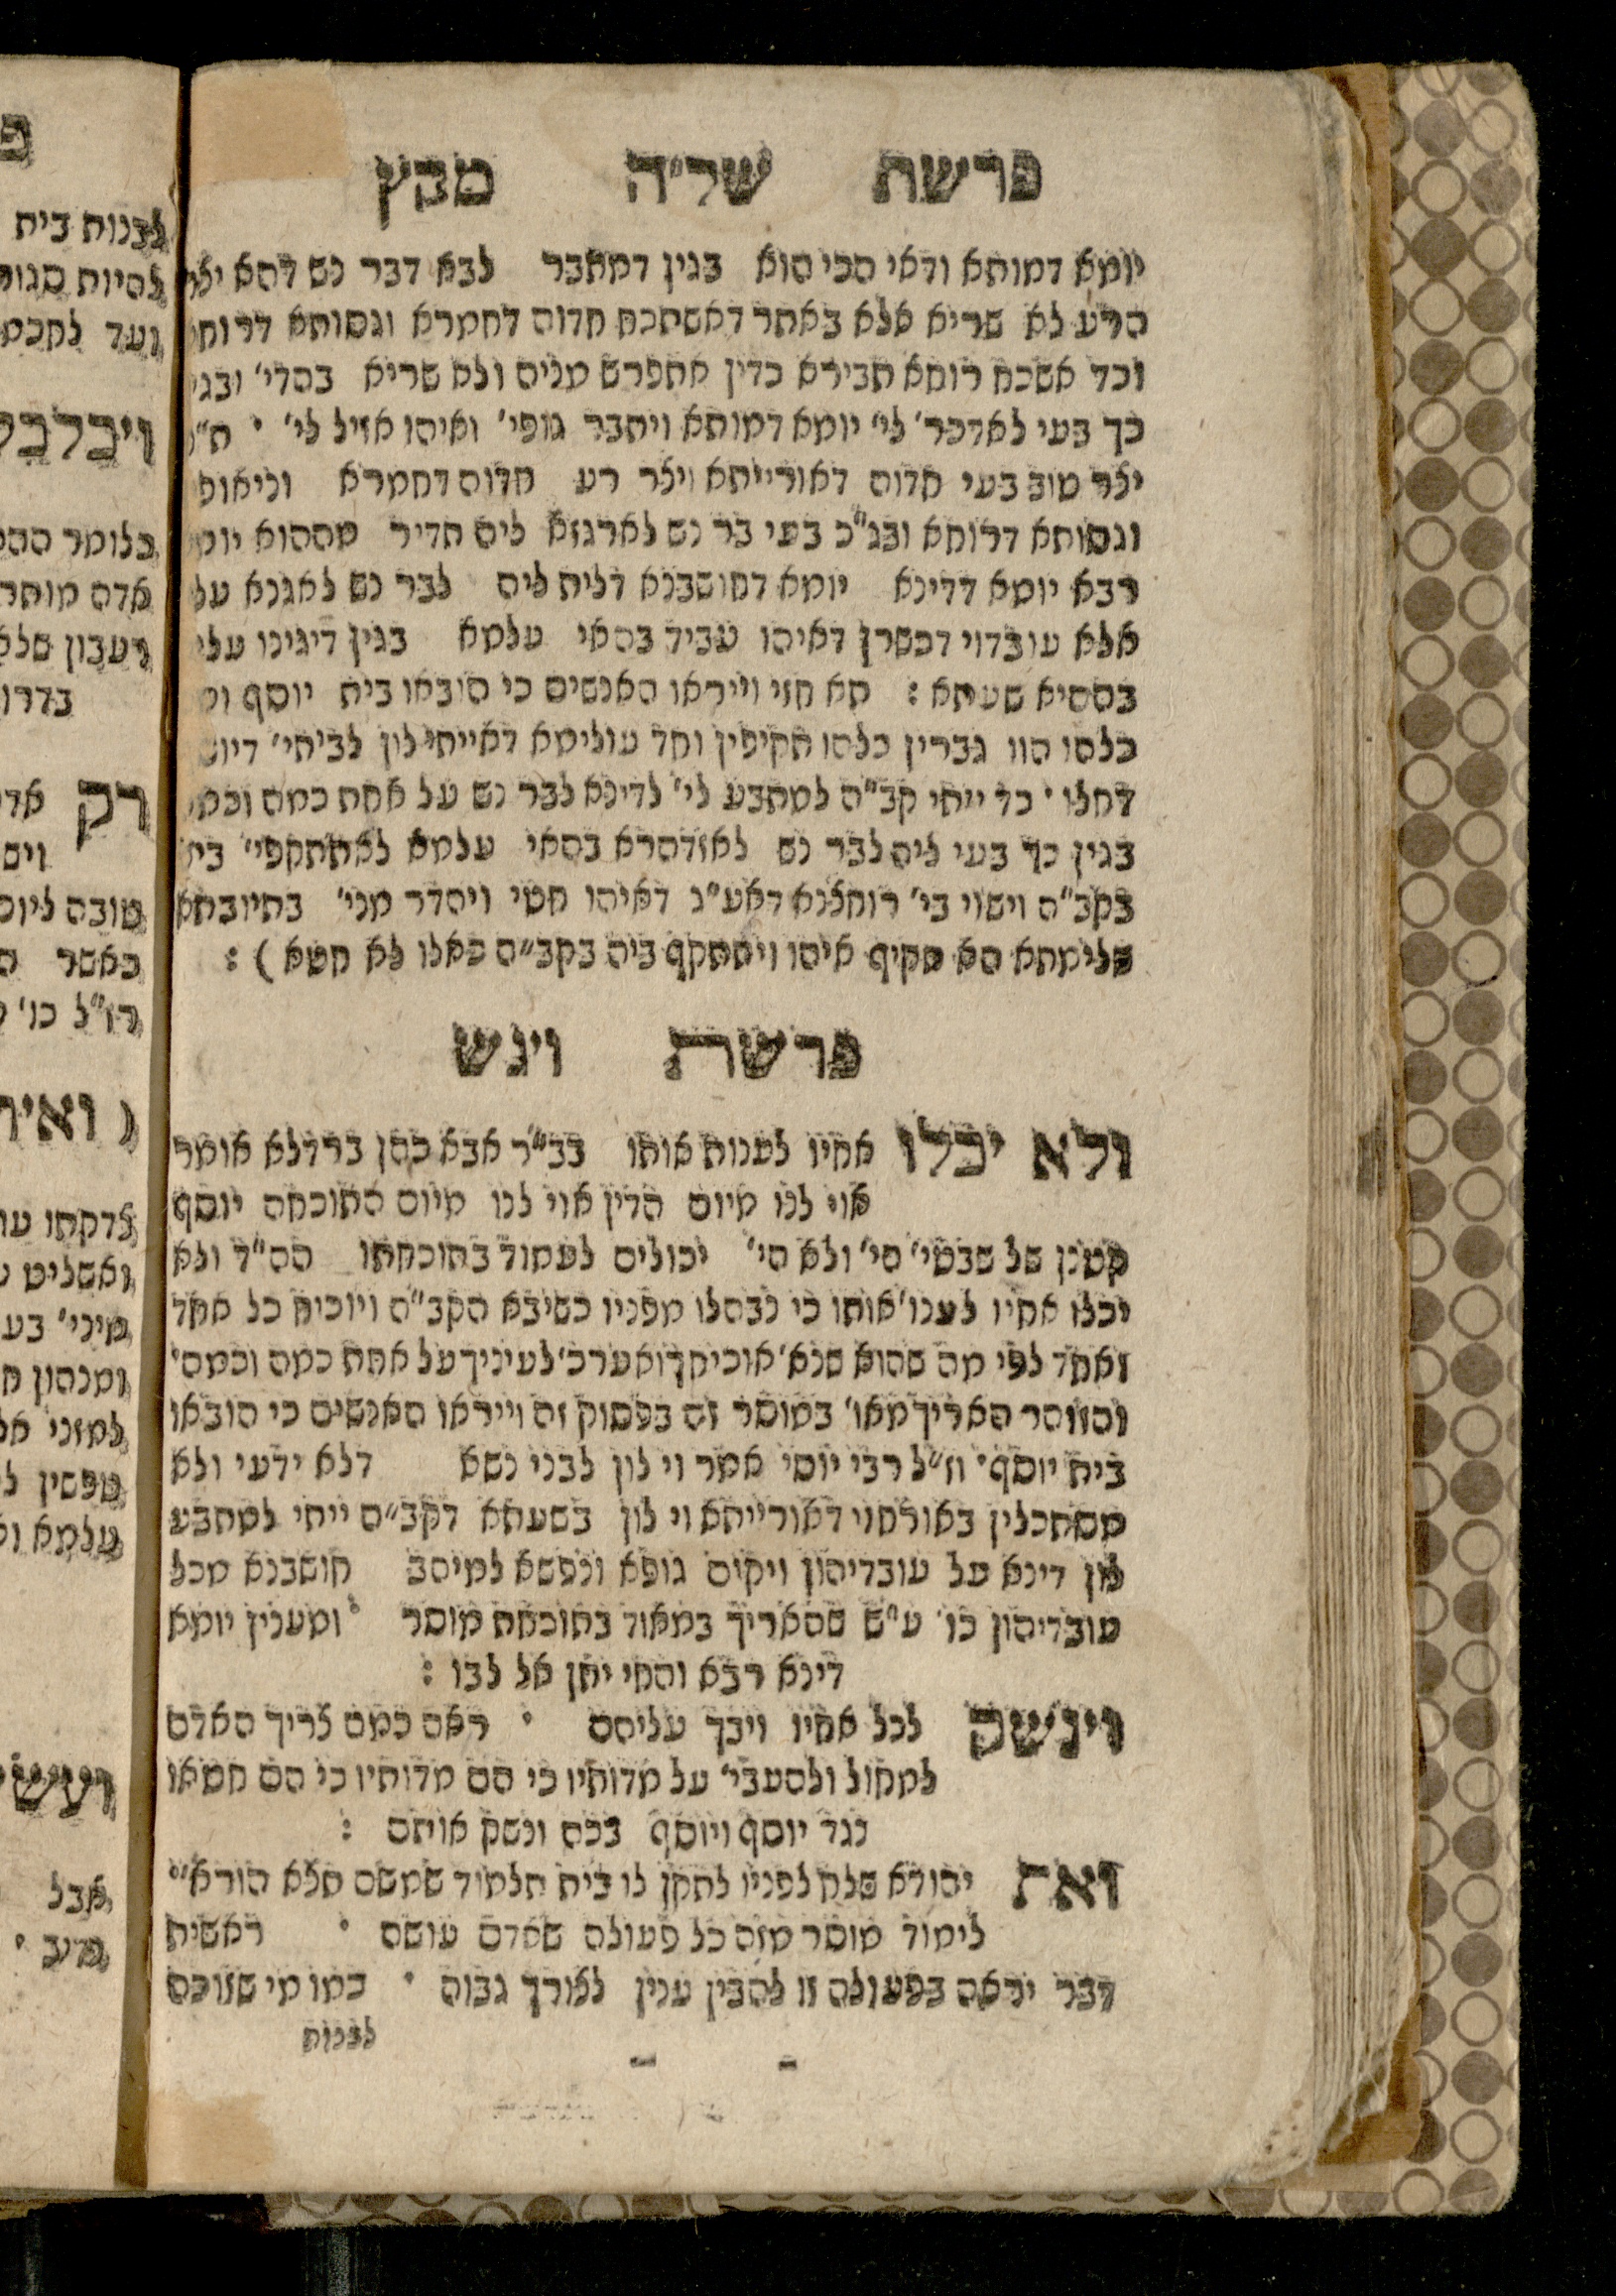 פרשת של״ה מקץ
יומא דמותא ודאי הכי הוא בגין דמתבר לבא דבר נש דהא יצר
הרע לא שריא אלא באתר דאשתכח חדוה דחמרא וגסותא דרוחא
וכד אשכח רוחא תבירא כדין אתפרש מניה ולא שריא בהדי׳
כך בעי לאדכר׳ לי׳ יומא דמותא ויתבר גופי׳ ואיהו אזיל לי׳ ׳
יצר טוב בעי חדוה דאורייתא ויצר רע חדוה דחמרא וניאופא
וגסותא דרוחא ובג״כ בעי בר נש לארגזא ליה תדיר מההוא יומא
רבא יומא דדינא יומא דחושבנא דלית ליה לבר נש לאגנא עליה
אלא עובדוי דכשרן דאיהו עביד בהאי עלמא בגין דיגינו עליה
בההיא שעתא : תא חזי וייראו האנשים כי הובאו בית יוסף
כלהו הוו גברין כלהו תקיפין וחד עולימא דאייתי לון לביתי׳ דיוסף
דחלו ׳ כד ייתי קב״ה למתבע לי׳ לדינא לבר נש על אחת כמה וכמה
בגין כך בעי ליה לבר נש לאזדהרא בהאי עלמא לאתתקפי׳ ביה
בקב״ה וישוי בי׳ רוחצנא דאע״ג דאיהו חטי ויהדר מני׳ בתיובתא
שלימתא הא תקיף איהו ויתתקף ביה בקב״ה כאלו לא חטא ) :
פרשת ויגש
ולא יכלו אחיו לענות אותו בב״ר אבא כהן ברדלא אומר
אוי לנו מיום הדין אוי לנו מיום התוכחה יוסף
קטנן של שבטי׳ הי׳ ולא הי׳ יכולים לעמוד בתוכחתו הה״ד ולא
יכלו אחיו לענו׳ אותו כי נבהלו מפניו כשיבא הקב״ה ויוכיח כל אחד
ואחד לפי מה שהוא שנא׳ אוכיחך ואערכ׳ לעיניך על אחת כמה וכמה׳
והזוהר האריך מאו׳ במוסר זה בפסוק זה וייראו האנשים כי הובאו
בית יוסף׳ וז״ל רבי יוסי אמר וי לון לבני נשא דלא ידעי ולא
מסתכלין באורחוי דאורייתא וי לון בשעתא דקב״ה ייתי למתבע
לון דינא על עובדיהון ויקום גופא ונפשא למיהב חושבנא מכל
עובדיהון כו׳ ע״ש שהאריך במאוד בתוכחת מוסר ׳ ומענין יומא
דינא רבא והחי יתן אל לבו :
וינשק לכל אחיו ויבך עליהם ׳ ראה כמה צריך האדם
למחול ולהעבי׳ על מדותיו כי הם מדותיו כי הם חטאו
נגד יוסף ויוסף בכה ונשק אותם :
ואת יהודא שלח לפניו לתקן לו בית תלמוד שמשם תצא הורא״
לימוד מוסר מזה כל פעולה שאדם עושה ׳ ראשית
דבר יראה בפעולה זו להבין ענין לצורך גבוה ׳ כמו מי שזוכה
לבנות